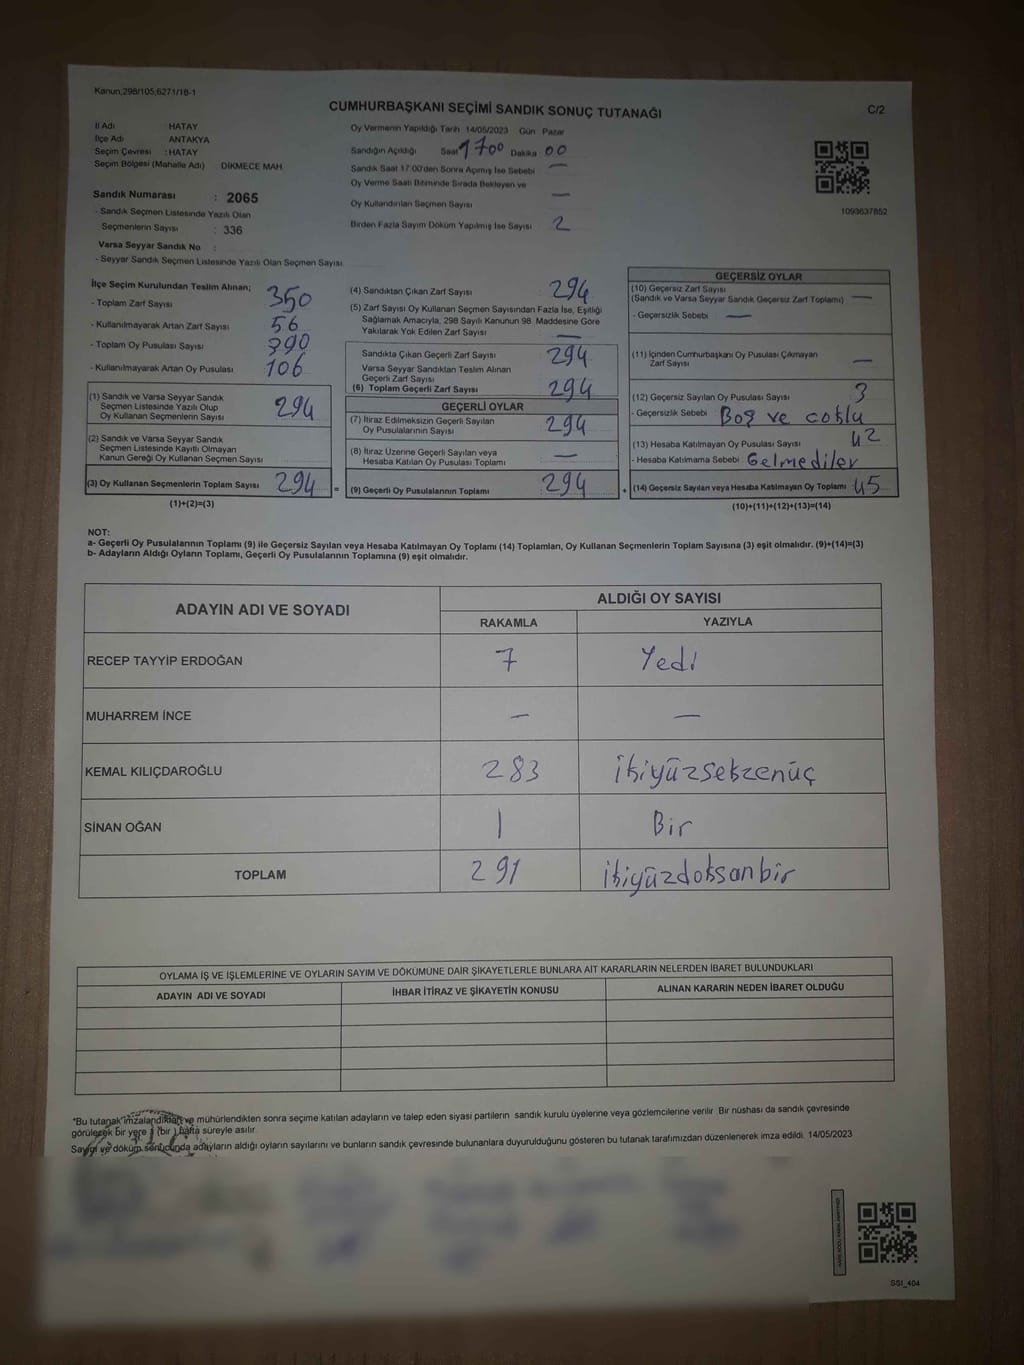 Kanun;298/105;6271/18-1
CUMHURBAŞKANI SEÇİMİ SANDIK SONUÇ TUTANAĞI
C/2
İl Adı HATAY
İlçe Adı ANTAKYA
Seçim Çevresi : HATAY
Seçim Bölgesi (Mahalle Adı) DİKMECE MAH.
Sandık Numarası : 2065
- Sandık Seçmen Listesinde Yazılı Olan
Seçmenlerin Sayısı : 336
Varsa Seyyar Sandık No :
- Seyyar Sandık Seçmen Listesinde Yazılı Olan Seçmen Sayısı
Oy Vermenin Yapıldığı Tarih 14/05/2023 Gün Pazar
Sandığın Açıldığı Saat 1700 Dakika 00
Sandık Saat 17:00'den Sonra Açımış İse Sebebi —
Oy Verme Saati Bitiminde Sırada Bekleyen ve
Oy Kullandırılan Seçmen Sayısı —
Birden Fazla Sayım Döküm Yapılmış İse Sayısı 2
1093637852
İlçe Seçim Kurulundan Teslim Alınan;
- Toplam Zarf Sayısı 350
- Kullanılmayarak Artan Zarf Sayısı 56
- Toplam Oy Pusulası Sayısı 390
- Kullanılmayarak Artan Oy Pusulası 106
(1) Sandık ve Varsa Seyyar Sandık
Seçmen Listesinde Yazılı Olup
Oy Kullanan Seçmenlerin Sayısı 294
(2) Sandık ve Varsa Seyyar Sandık
Seçmen Listesinde Kayıtlı Olmayan
Kanun Gereği Oy Kullanan Seçmen Sayısı
(3) Oy Kullanan Seçmenlerin Toplam Sayısı 294 =
(1)+(2)=(3)
(4) Sandıktan Çıkan Zarf Sayısı 294
(5) Zarf Sayısı Oy Kullanan Seçmen Sayısından Fazla İse, Eşitliği
Sağlamak Amacıyla, 298 Sayılı Kanunun 98. Maddesine Göre
Yakılarak Yok Edilen Zarf Sayısı —
Sandıkta Çıkan Geçerli Zarf Sayısı 294
Varsa Seyyar Sandıktan Teslim Alınan
Geçerli Zarf Sayısı
(6) Toplam Geçerli Zarf Sayısı 294
GEÇERLİ OYLAR
(7) İtiraz Edilmeksizin Geçerli Sayılan
Oy Pusulalarının Sayısı 294
(8) İtiraz Üzerine Geçerli Sayılan veya
Hesaba Katılan Oy Pusulası Toplamı —
(9) Geçerli Oy Pusulalarının Toplamı 294 +
GEÇERSİZ OYLAR
(10) Geçersiz Zarf Sayısı
(Sandık ve Varsa Seyyar Sandık Geçersiz Zarf Toplamı) —
- Geçersizlik Sebebi —
(11) İçinden Cumhurbaşkanı Oy Pusulası Çıkmayan
Zarf Sayısı —
(12) Geçersiz Sayılan Oy Pusulası Sayısı 3
- Geçersizlik Sebebi Boş ve çoklu
(13) Hesaba Katılmayan Oy Pusulası Sayısı 42
- Hesaba Katılmama Sebebi Gelmediler
(14) Geçersiz Sayılan veya Hesaba Katılmayan Oy Toplamı 45
(10)+(11)+(12)+(13)=(14)
NOT:
a- Geçerli Oy Pusulalarının Toplamı (9) ile Geçersiz Sayılan veya Hesaba Katılmayan Oy Toplamı (14) Toplamları, Oy Kullanan Seçmenlerin Toplam Sayısına (3) eşit olmalıdır. (9)+(14)=(3)
b- Adayların Aldığı Oyların Toplamı, Geçerli Oy Pusulalarının Toplamına (9) eşit olmalıdır.
ADAYIN ADI VE SOYADI
ALDIĞI OY SAYISI
RAKAMLA YAZIYLA
RECEP TAYYİP ERDOĞAN 7 Yedi
MUHARREM İNCE — —
KEMAL KILIÇDAROĞLU 283 ikiyüzseksenüç
SİNAN OĞAN 1 Bir
TOPLAM 291 ikiyüzdoksanbir
OYLAMA İŞ VE İŞLEMLERİNE VE OYLARIN SAYIM VE DÖKÜMÜNE DAİR ŞİKAYETLERLE BUNLARA AİT KARARLARIN NELERDEN İBARET BULUNDUKLARI
ADAYIN ADI VE SOYADI İHBAR İTİRAZ VE ŞİKAYETİN KONUSU ALINAN KARARIN NEDEN İBARET OLDUĞU
*Bu tutanak imzalandıktan ve mühürlendikten sonra seçime katılan adayların ve talep eden siyasi partilerin sandık kurulu üyelerine veya gözlemcilerine verilir. Bir nüshası da sandık çevresinde
görülecek bir yere 1 (bir) hafta süreyle asılır.
Sayım ve döküm sonucunda adayların aldığı oyların sayılarını ve bunların sandık çevresinde bulunanlara duyurulduğunu gösteren bu tutanak tarafımızdan düzenlenerek imza edildi. 14/05/2023
SSI_404